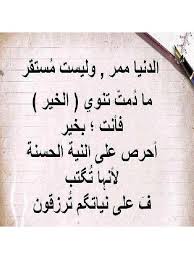 الدنيا ممر , وليست مُستقر
ما دُمتّ تنوي ( الخير )
فأنت ؛ بخير
أحرص على النية الحسنة
لأنها تُكتب
فَ على نياتكم تُرزقون